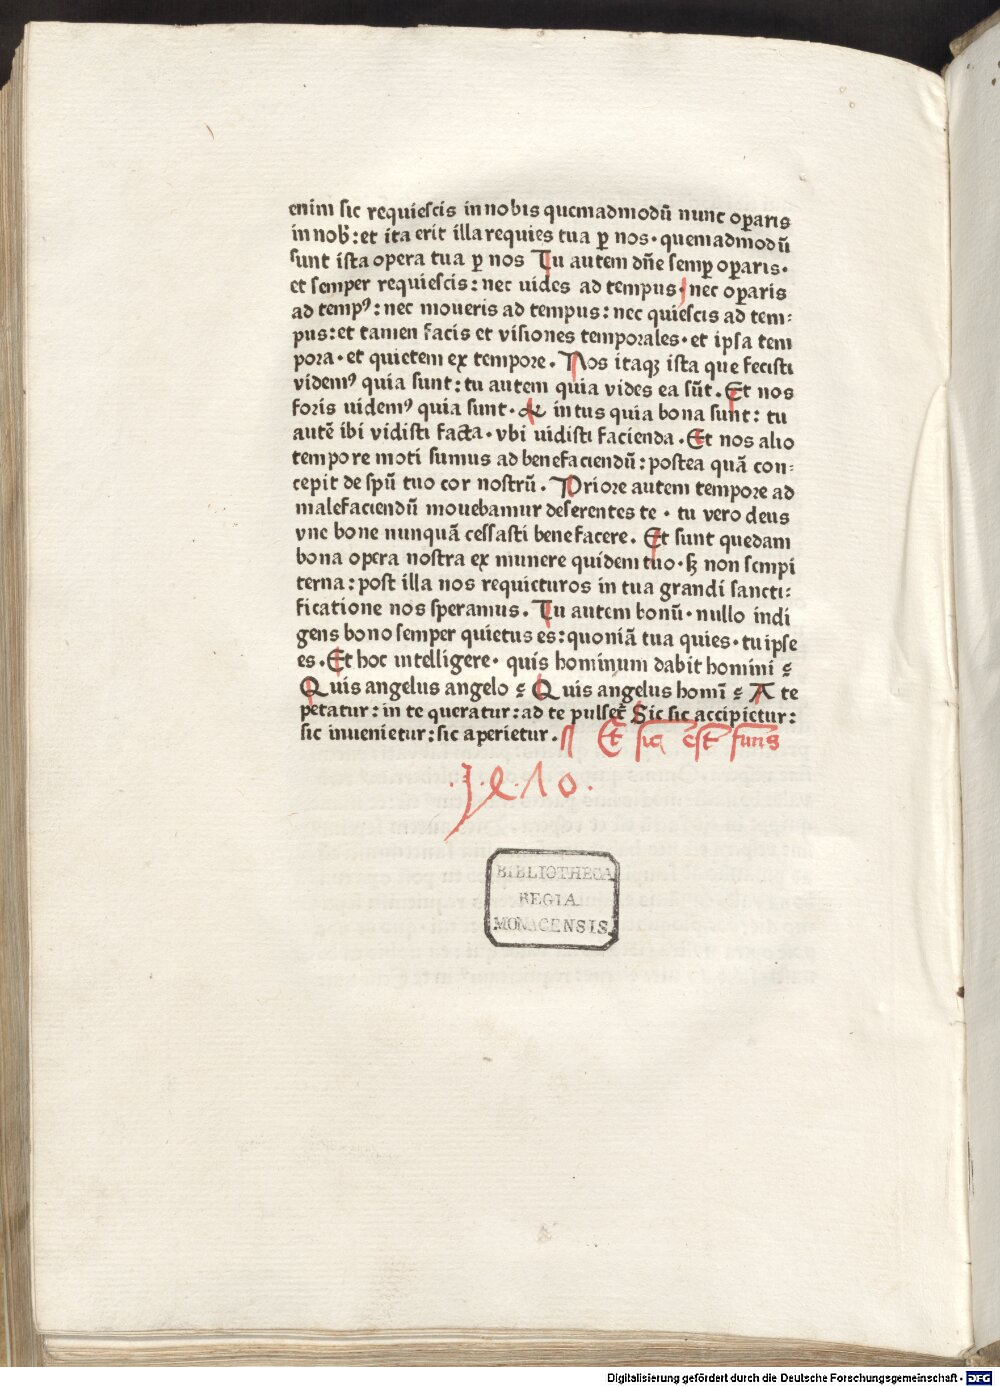 enim sic requiescis in nobis quemadmodū nunc oꝑaris
in nob̄:et ita erit illa requies tua ꝑ nos·quemadmodū
sunt ista opera tua ꝑ nos Tu autem dn̄e semꝑ oꝑaris·
et semper requiescis:nec uides ad tempus·nec oꝑaris
ad tempꝰ:nec moueris ad tempus:nec quiescis ad tem:
pus:et tamen facis et visiones temporales·et ipsa tem
pora·et quietem ex tempore. Nos itaqȝ ista que fecisti
videmꝰ quia sunt:tu autem quia vides ea sūt. Et nos
foris uidemꝰ quia sunt·& intus quia bona sunt: tu
autē ibi vidisti facta·vbi uidisti facienda. Et nos alio
tempore moti sumus ad benefaciendū:postea quā con:
cepit de spū tuo cor nostrū. Priore autem tempore ad
malefaciendū mouebamur deserentes te· tu vero deus
vne bone nunquā cessasti benefacere. Et sunt quedam
bona opera nostra ex munere quidem tuo·sȝ non sempi
terna:post illa nos requieturos in tua grandi sancti:
ficatione nos speramus. Tu autem bonū·nullo indi
gens bono semper quietus es:quoniā tua quies·tu ipse
es. Et hoc intelligere· quis hominum dabit homini ?
Quis angelus angelo ? Quis angelus homī ? A te
petatur:in te queratur:ad te pulset᷑ Sic sic accipietur:
sic inuenietur:sic aperietur.
BIBLIOTHECA
REGIA
MONACENSIS.
Digitalisierung gefördert durch die Deutsche Forschungsgemeinschaft - DFG